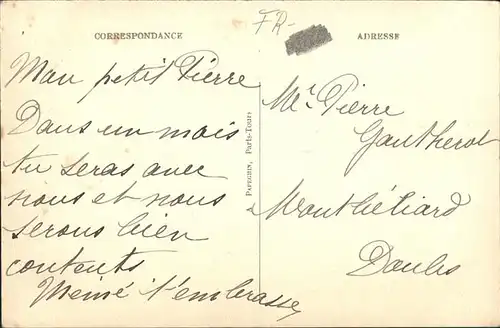 FR-
CORRESPONDANCE
ADRESSE
Mon petit Pierre
Dans un mois
tu seras avec
nous et nous
serons bien
contents
Mémé t'embrasse
PAPEGHIN, PARIS-TOURS
Mr. Pierre
Gautherot
à Montbéliard
Doubs